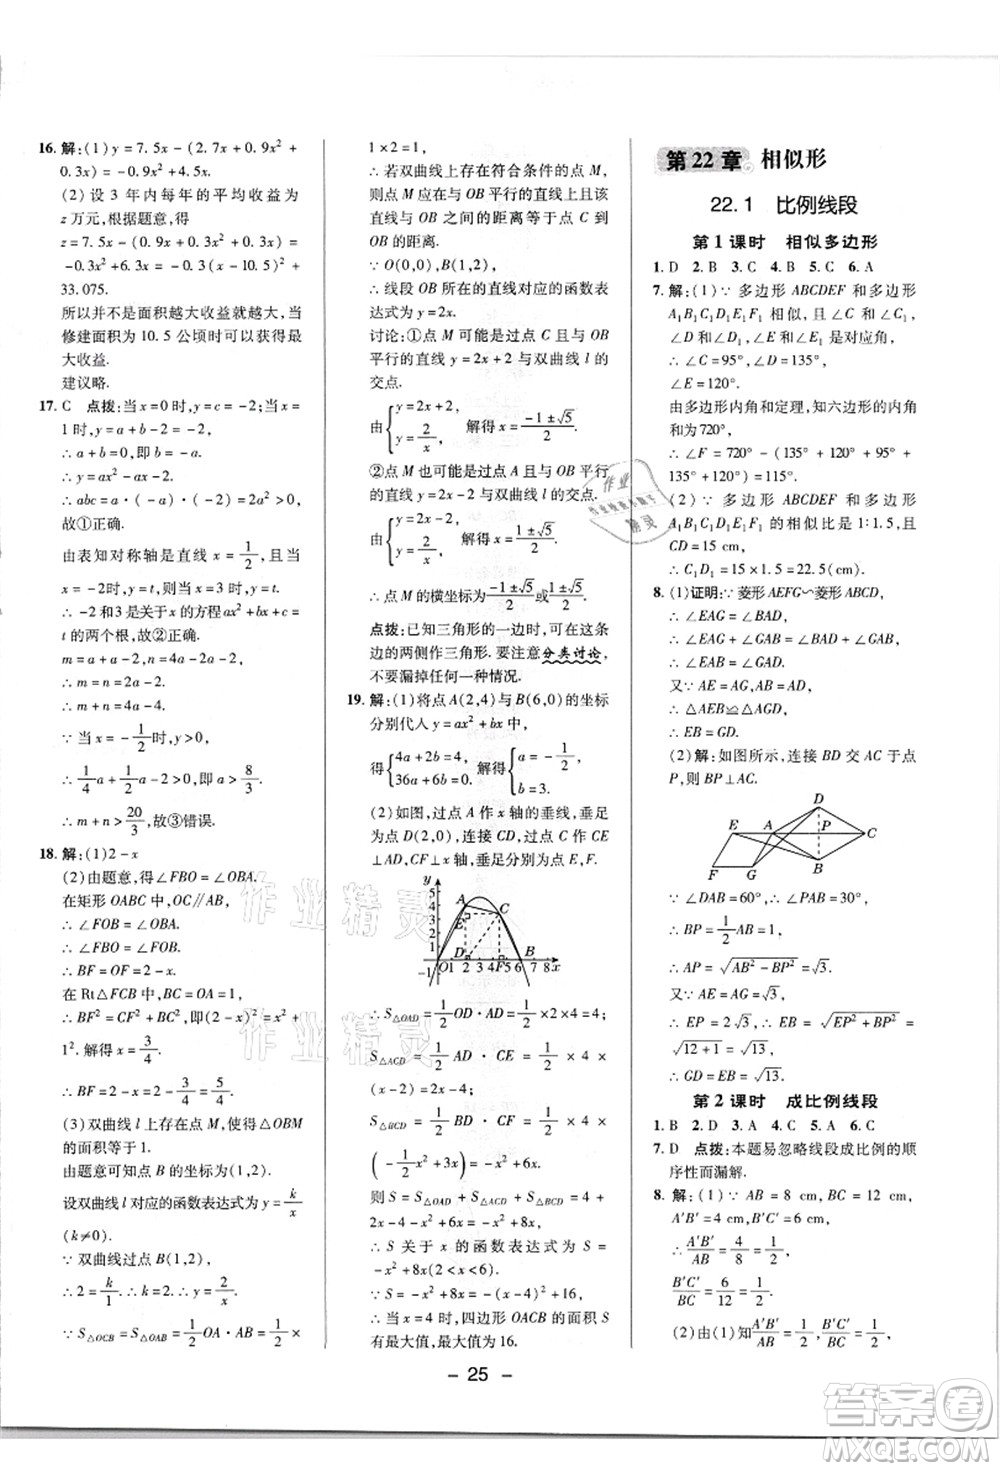 16. 解:(1)y=7.5x-(2.7x+0.9x²+
0.3x)=-0.9x²+4.5x.
(2)设 3 年内每年的平均收益为
z 万元,根据题意,得
z=7.5x-(0.9x+0.3x²+0.3x)=
-0.3x²+6.3x=-0.3(x-10.5)²+
33.075.
所以并不是面积越大收益就越大,当
修建面积为 10.5 公顷时可以获得最
大收益.
建议略.
17. C 点拨:当 x=0 时,y=c=-2;当 x=
1时,y=a+b-2=0,
∴a+b=-c=2>0,即 b=2-a.
∴y=ax²-ax-2.
∴abc=a·(-a)·(-2)=2a²>0,
故①正确.
由表知对称轴是直线 x=1/2,且当 x
=-2时,y=t,则当 x=3时,y=t,
∴-2和3是关于x的方程ax²+bx+c=
t的两个根,故②正确.
m=a-a-2,n=4a-2a-2,
∴m=n=2a-2.
∴m+n=4a-4.
∵当 x=-1/2时,y>0,
∴1/4a+1/2a-2>0,即 a>8/3.
∴m+n>20/3,故③错误.
18. 解:(1)2-x
(2)由题意,得∠FBO=∠OBA.
在矩形 OABC 中,OC∥AB,
∴∠FOB=∠OBA.
∴∠FBO=∠FOB.
∴BF=OF=2-x.
在 Rt△FCB 中,BC=OA=1,
∴BF²=CF²+BC²,即(2-x)²=x²+
1².解得 x=3/4.
∴BF=2-x=2-3/4=5/4.
(3)双曲线 l 上存在点 M,使得△OBM
的面积等于1.
由题意可知点 B 的坐标为(1,2),
设双曲线 l 对应的函数表达式为 y=k/x
(k≠0).
∵双曲线过点 B(1,2),
∴2=k/1.∴k=2.∴y=2/x.
∵S△OCB=S△OAB=1/2OA·AB=1/2×
1×2=1,
∴若双曲线上存在符合条件的点 M,
则点 M 应在与 OB 平行的直线上且该
直线与 OB 之间的距离等于点 C 到
OB 的距离.
∵O(0,0),B(1,2),
∴线段 OB 所在的直线对应的函数表
达式为 y=2x.
讨论:①点 M 可能是过点 C 且与 OB
平行的直线 y=2x+2 与双曲线 l 的
交点.
由{y=2x+2, y=2/x 解得 x=(-1±√5)/2.
②点 M 也可能是过点 A 且与 OB 平行
的直线 y=2x-2 与双曲线 l 的交点.
由{y=2x-2, y=2/x, 解得 x=(1±√5)/2.
∴点 M 的横坐标为(-1±√5)/2或(1±√5)/2.
点拨:已知三角形的一边时,可在这条
边的两侧作三角形.要注意分类讨论,
不要漏掉任何一种情况.
19. 解:(1)将点 A(2,4)与 B(6,0)的坐标
分别代人 y=ax²+bx 中,
得{4a+2b=4, 36a+6b=0, 解得{a=-1/2, b=3.
(2)如图,过点 A 作 x 轴的垂线,垂足
为点 D(2,0),连接 CD,过点 C 作 CE
⊥AD,CF⊥x 轴,垂足分别为点 E,F.
y
5
4
3
2
1
-1
A
C
E
D
F
B
O 1 2 3 4 5 6 7 8 x
∴S△OAD=1/2OD·AD=1/2×2×4=4,
S△ACD=1/2AD·CE=1/2×4×
(x-2)=2x-4,
S△BCD=1/2BD·CF=1/2×4×
(-1/2x²+3x)=-x²+6x,
则 S=S△OAD+S△ACD+S△BCD=4+
2x-4-x²+6x=-x²+8x.
∴S 关于 x 的函数表达式为 S=
-x²+8x(2<x<6),
∵S=-x²+8x=-(x-4)²+16,
∴当 x=4 时,四边形 OACB 的面积 S
有最大值,最大值为 16.
第22章 相似形
22.1 比例线段
第1课时 相似多边形
1. D 2. B 3. C 4. D 5. C 6. A
7. 解:(1)∵多边形 ABCDEF 和多边形
A₁B₁C₁D₁E₁F₁ 相似,且∠C 和∠C₁,
∠D 和∠D₁,∠E 和∠E₁ 是对应角,
∴∠C=95°,∠D=135°,
∠E=120°.
由多边形内角和定理,知六边形的内角
和为720°,
∴∠F=720°-(135°+95°+
135°+120°+120°)=115°.
(2)∵多边形 ABCDEF 和多边形
A₁B₁C₁D₁E₁F₁ 的相似比是1∶1.5,且
CD=15 cm,
∴C₁D₁=15×1.5=22.5(cm).
8. (1)证明:∵菱形 AEFG∽菱形ABCD,
∴∠EAG=∠BAD,
∴∠EAB=∠GAD.
又∵AE=AG,AB=AD,
∴△AEB≌△AGD,
∴EB=GD.
(2)解:如图所示,连接 BD 交 AC 于点
P,则 BP⊥AC.
D
E A P C
F G B
∵∠DAB=60°,∴∠PAB=30°,
∴BP=1/2AB=1,
∴AP=√(AB²-BP²)=√3.
∴EP=2√3,∴EB=√(EP²+BP²)=
√(12+1)=√13.
∴GD=EB=√13.
第2课时 成比例线段
1. B 2. D 3. A 4. C 5. A 6. C
7. D 点拨:本题易忽略线段成比例的顺
序性而漏解.
8. 解:(1)∵AB=8 cm,BC=12 cm,
A'B'=4 cm,B'C'=6 cm,
∴A'B'/AB=4/8=1/2,
B'C'/BC=6/12=1/2.
(2)由(1)知A'B'/AB=1/2,B'C'/BC=1/2,
- 25 -
作业精灵
作业精灵
作业
精灵
答案圈
MXQE.COM